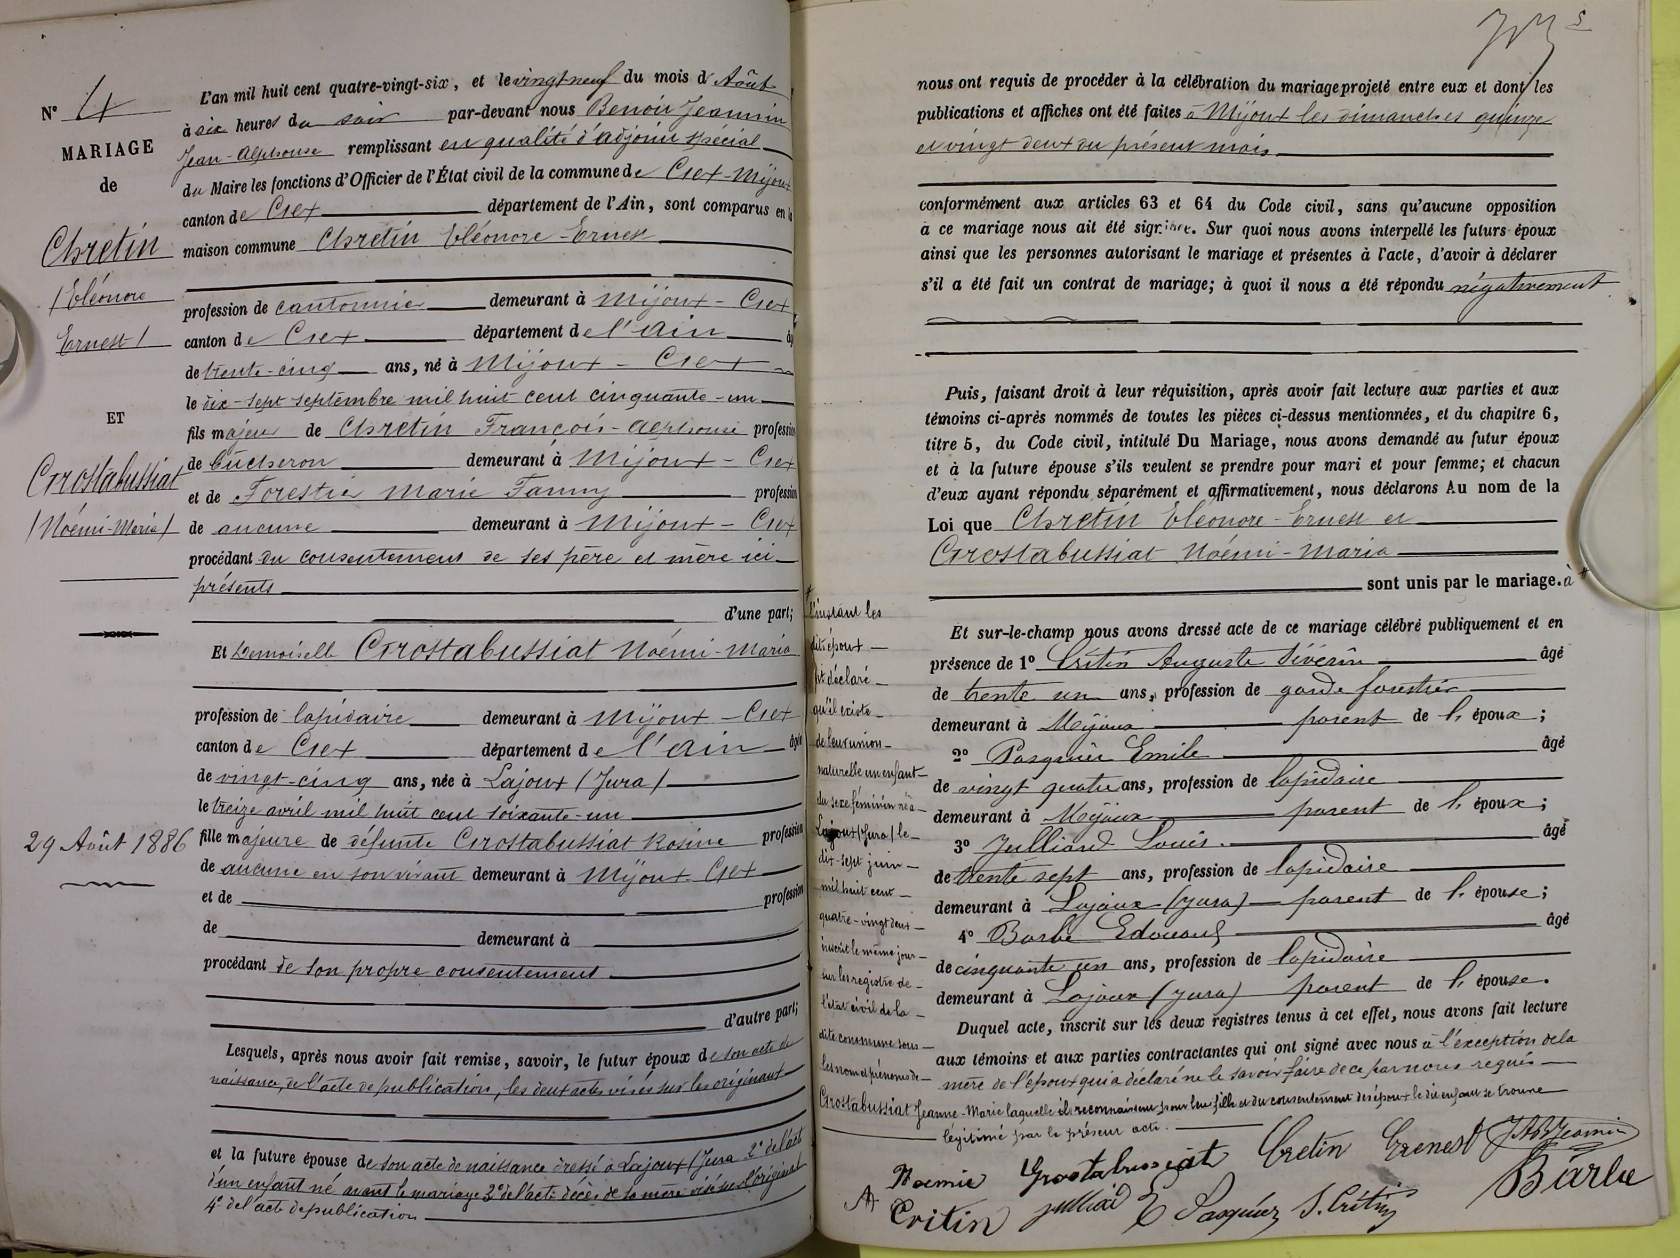 N° 4
MARIAGE
de
Chretin
(Eléonore
Ernest)
ET
Grostabussiat
(Noémi-Maria)
29 Août 1886
L'an mil huit cent quatre-vingt-six, et le vingt neuf du mois d'Août
à six heures du soir par-devant nous Benoit Jeannin
Jean-Alphonse remplissant en qualité d'adjoint spécial
du Maire les fonctions d'Officier de l'État civil de la commune de Gex-Mijoux
canton de Gex département de l'Ain, sont comparus en la
maison commune Chretin Eléonore-Ernest
profession de cantonnier demeurant à Mijoux-Gex
canton de Gex département de l'Ain âgé
de trente-cinq ans, né à Mijoux-Gex
le dix-sept septembre mil huit cent cinquante-un
fils majeur de Chretin François-Alphonse profession
de bûcheron demeurant à Mijoux-Gex
et de Forestier Marie Fanny profession
de aucune demeurant à Mijoux-Gex
procédant du consentement de ses père et mère ici
présents
d'une part;
Et Demoiselle Grostabussiat Noémi-Maria
profession de lapidaire demeurant à Mijoux-Gex
canton de Gex département de l'Ain âgée
de vingt-cinq ans, née à Lajoux (Jura)
le treize avril mil huit cent soixante-un
fille majeure de défunte Grostabussiat Rosine profession
de aucune en son vivant demeurant à Mijoux-Gex
et de profession
de demeurant à
procédant de son propre consentement
d'autre part;
Lesquels, après nous avoir fait remise, savoir, le futur époux de son acte de
naissance, de l'acte de publication, les deux actes visés sur les originaux
et la future épouse de son acte de naissance dressé à Lajoux (Jura 2° de l'acte
d'un enfant né avant le mariage 3° de l'acte décès de sa mère visé sur l'original
4° de l'acte de publication
nous ont requis de procéder à la célébration du mariage projeté entre eux et dont les
publications et affiches ont été faites à Mijoux les dimanches quinze
et vingt deux du présent mois
conformément aux articles 63 et 64 du Code civil, sans qu'aucune opposition
à ce mariage nous ait été signifiée. Sur quoi nous avons interpellé les futurs époux
ainsi que les personnes autorisant le mariage et présentes à l'acte, d'avoir à déclarer
s'il a été fait un contrat de mariage; à quoi il nous a été répondu négativement
Puis, faisant droit à leur réquisition, après avoir fait lecture aux parties et aux
témoins ci-après nommés de toutes les pièces ci-dessus mentionnées, et du chapitre 6,
titre 5, du Code civil, intitulé Du Mariage, nous avons demandé au futur époux
et à la future épouse s'ils veulent se prendre pour mari et pour femme; et chacun
d'eux ayant répondu séparément et affirmativement, nous déclarons Au nom de la
Loi que Chretin Eléonore-Ernest et
Grostabussiat Noémi-Maria
sont unis par le mariage. à *
* l'instant les
dits époux
ont déclaré
qu'il existe
de leur union
naturelle un enfant
du sexe féminin né à
Lajoux (Jura) le
dix-sept juin
mil huit cent
quatre-vingt deux
inscrit le même jour
sur les registre de
l'état civil de la
dite commune sous
les nom et prénoms de
Grostabussiat Jeanne-Marie laquelle ils reconnaissent pour leur fille et du consentement des époux le dit enfant se trouve
légitimé par le présent acte.
Et sur-le-champ nous avons dressé acte de ce mariage célébré publiquement et en
présence de 1° Critin Auguste Sévérin âgé
de trente un ans, profession de garde forestier
demeurant à Mijoux parent de l'époux;
2° Pasquier Emile âgé
de vingt quatre ans, profession de lapidaire
demeurant à Mijoux parent de l'époux;
3° Julliard Louis. âgé
de trente sept ans, profession de lapidaire
demeurant à Lajoux (Jura) parent de l'épouse;
4° Barbe Edouard âgé
de cinquante un ans, profession de lapidaire
demeurant à Lajoux (Jura) parent de l'épouse.
Duquel acte, inscrit sur les deux registres tenus à cet effet, nous avons fait lecture
aux témoins et aux parties contractantes qui ont signé avec nous à l'exception de la
mère de l'époux qui a déclaré ne le savoir faire de ce par nous requis
Noemie Grostabussiat Cretin Ernest
A Critin Julliard E Pasquier S. Critin Barbe